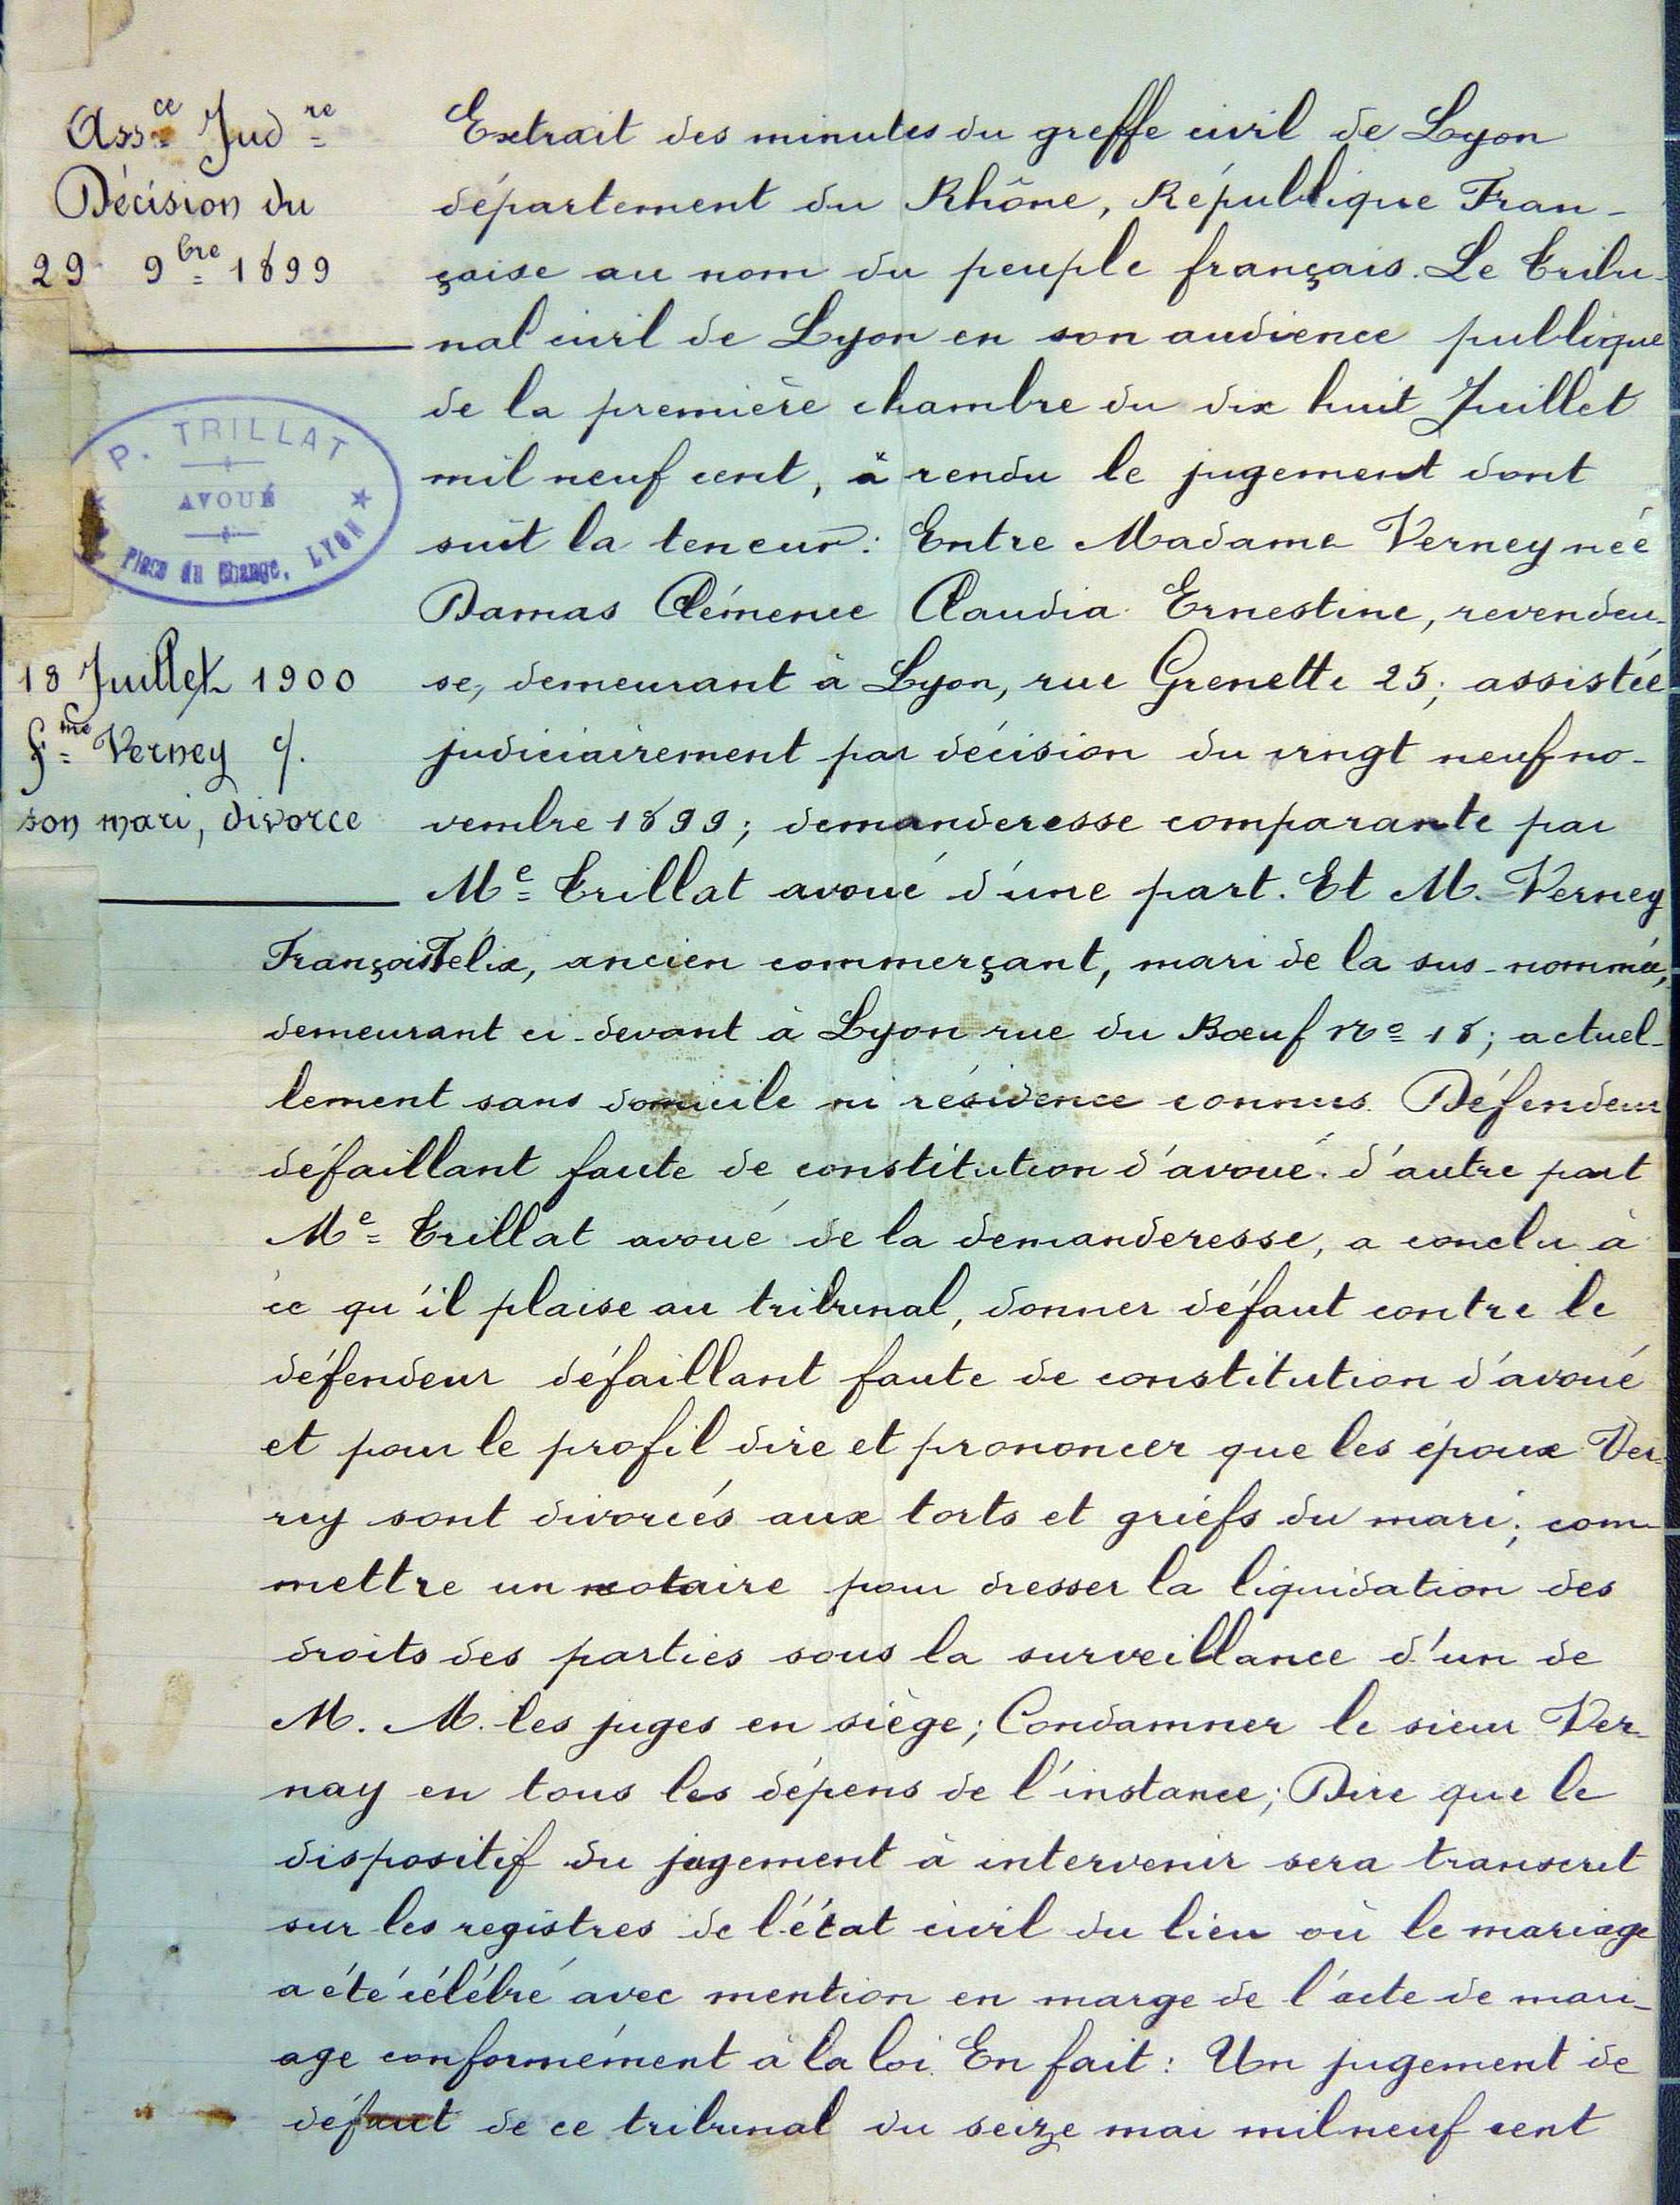 Ass.ce Jud.re
Décision du
29 9bre 1899
P. TRILLAT
AVOUÉ
Place du Change, LYON
18 Juillet 1900
fme Verney c/.
son mari, divorce
Extrait des minutes du greffe civil de Lyon
département du Rhône, République Fran-
çaise au nom du peuple français. Le tribu-
nal civil de Lyon en son audience publique
de la première chambre du dix huit Juillet
mil neuf cent, à rendu le jugement dont
suit la teneur: Entre Madame Verney née
Damas Clémence Claudia Ernestine, revendeu-
se, demeurant à Lyon, rue Grenette 25; assistée
judiciairement par décision du vingt neuf no-
vembre 1899; demanderesse comparante par
Me Trillat avoué d'une part. Et M. Verney
François Félix, ancien commerçant, mari de la sus-nommée,
demeurant ci-devant à Lyon rue du Bœuf No 18; actuel-
lement sans domicile ni résidence connus. Défendeur
défaillant faute de constitution d'avoué. d'autre part
Me Trillat avoué de la demanderesse, a conclu à
ce qu'il plaise au tribunal, donner défaut contre le
défendeur défaillant faute de constitution d'avoué
et pour le profil dire et prononcer que les époux Ver-
ney sont divorcés aux torts et griefs du mari; com-
mettre un notaire pour dresser la liquidation des
droits des parties sous la surveillance d'un de
M. M. les juges en siège; Condamner le sieur Ver-
nay en tous les dépens de l'instance; Dire que le
dispositif du jugement à intervenir sera transcrit
sur les registres de l'état civil du lieu où le mariage
a été célébré avec mention en marge de l'acte de mari-
age conformément à la loi. En fait: Un jugement de
défaut de ce tribunal du seize mai mil neuf cent